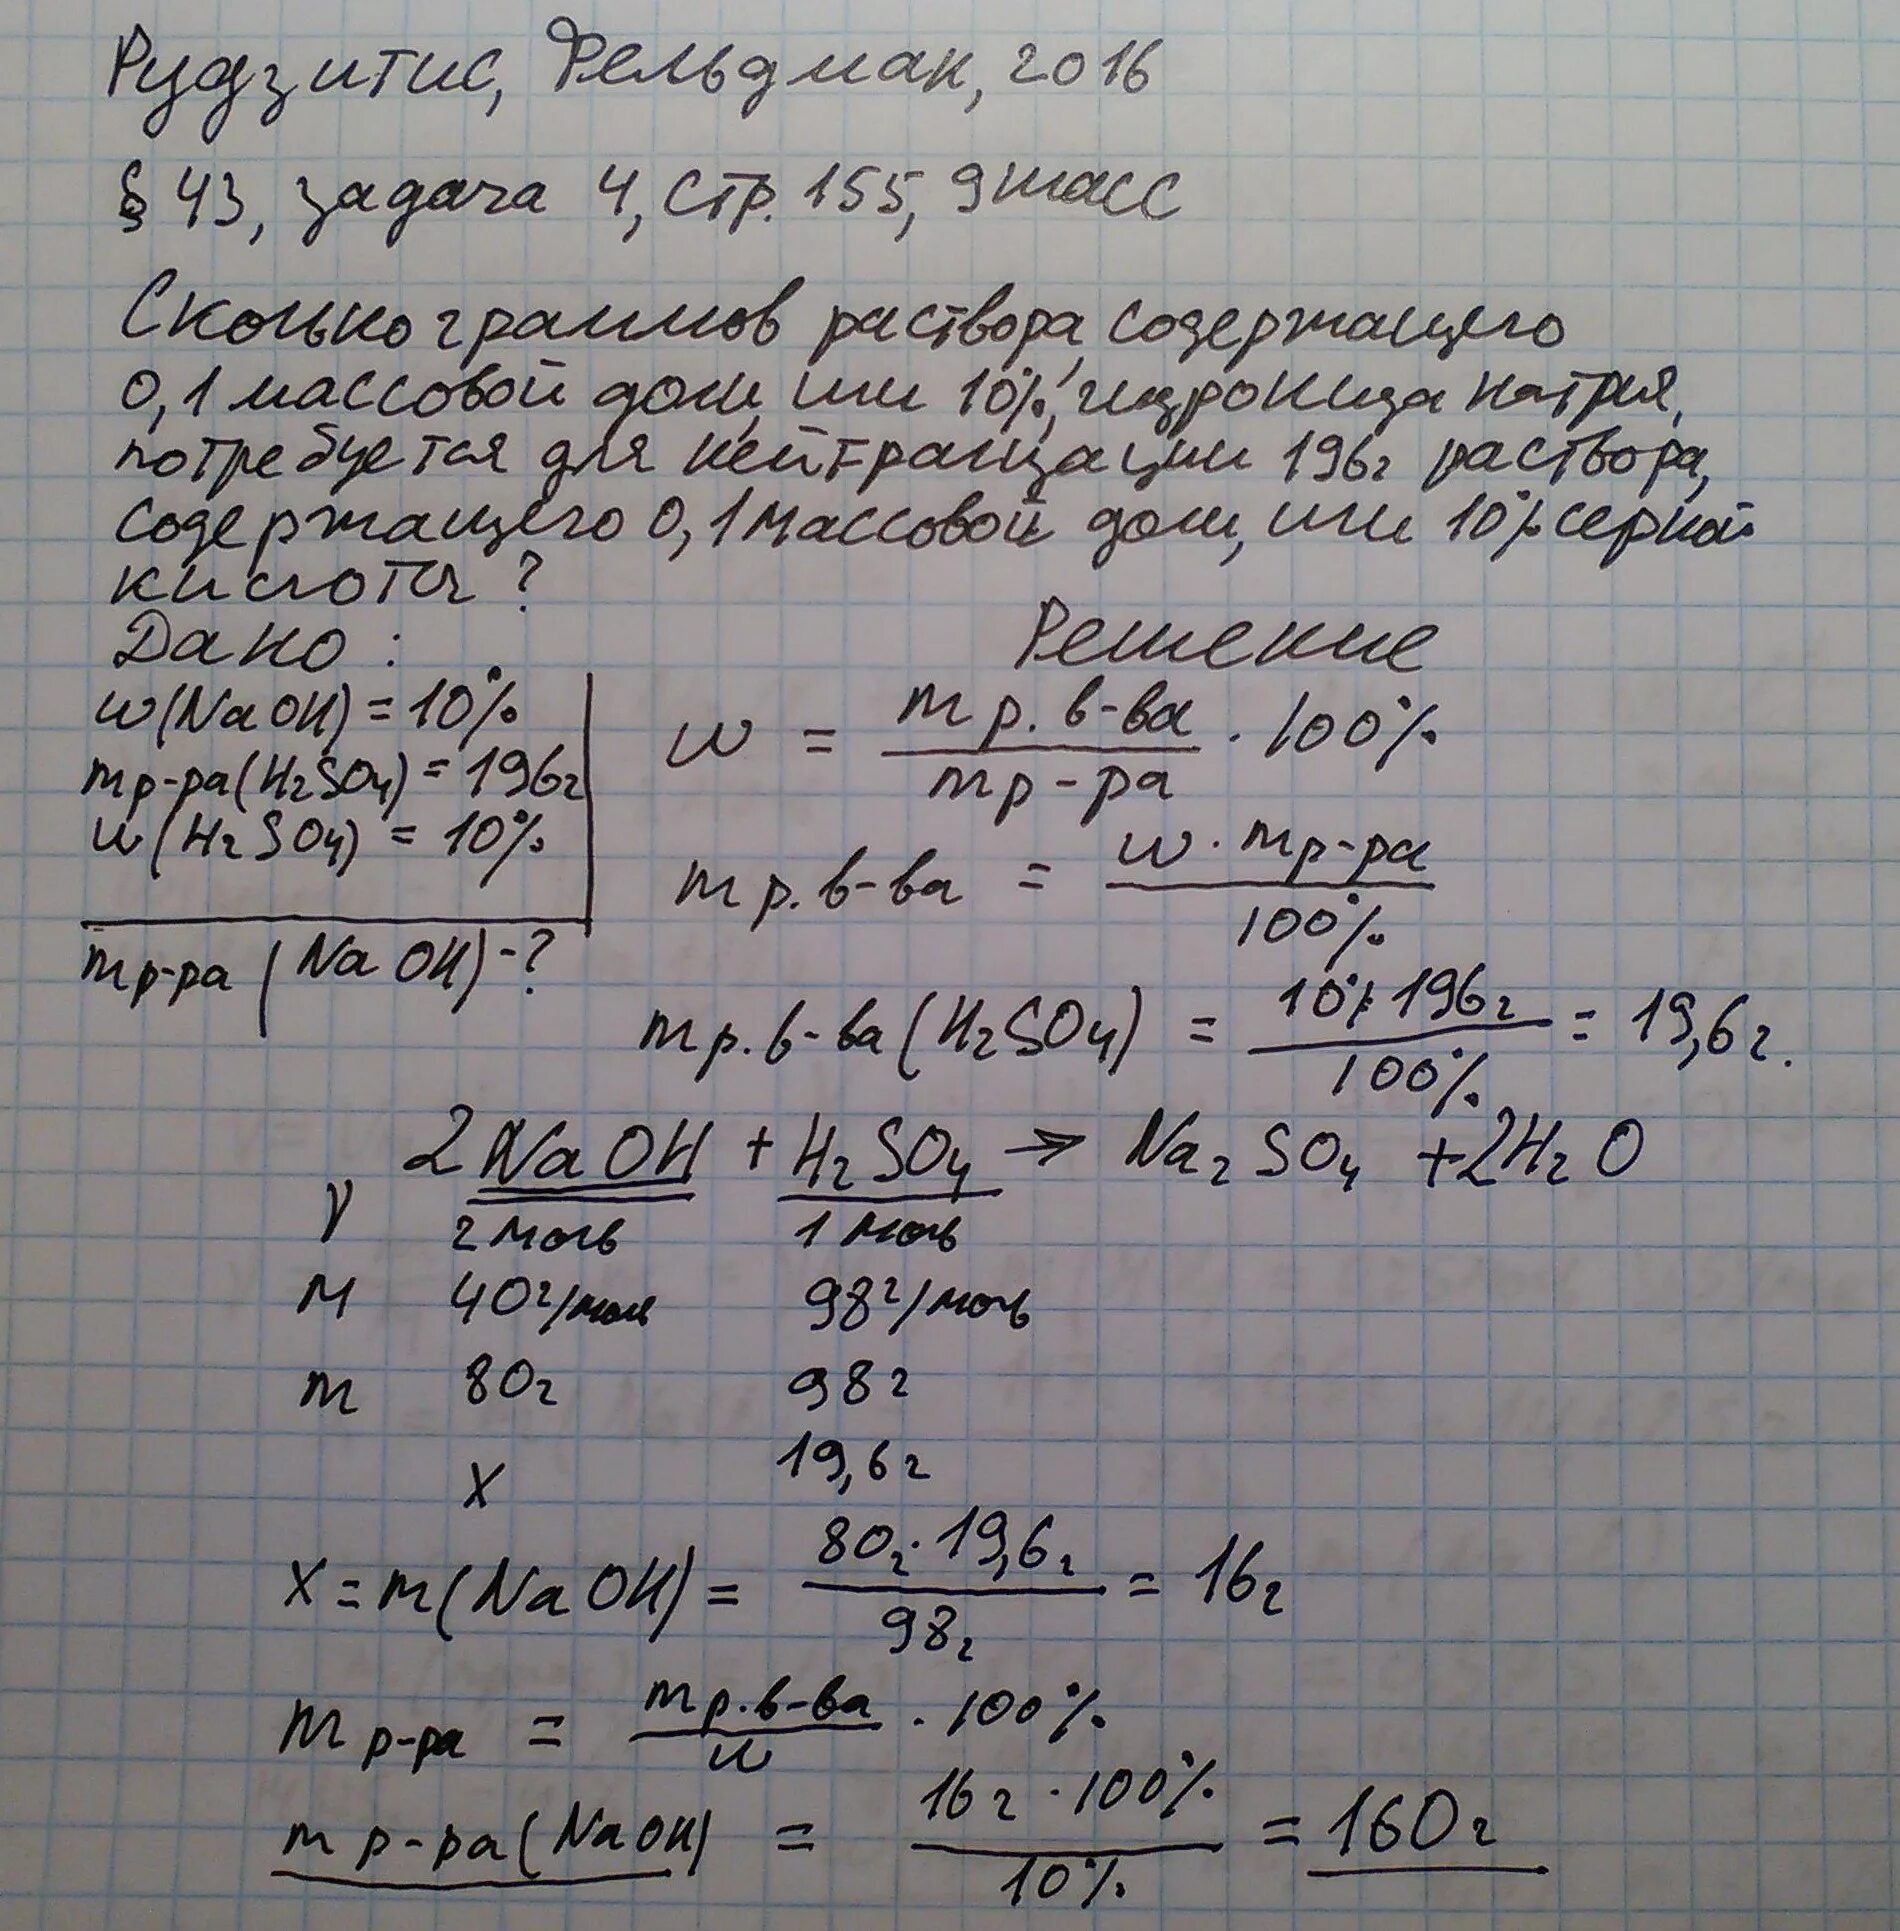 Рудзитис, Фельдман, 2016
§ 43, задача 4, стр. 155, 9 класс
Сколько граммов раствора, содержащего
0,1 массовой доли, или 10%, гидроксида натрия,
потребуется для нейтрализации 196г раствора,
содержащего 0,1 массовой доли, или 10% серной
кислоты?
Дано:
w(NaOH) = 10%
mр-ра(H₂SO₄) = 196г
w(H₂SO₄) = 10%
mр-ра(NaOH) - ?
Решение
w = mр.в-ва / mр-ра · 100%
mр.в-ва = w · mр-ра / 100%
mр.в-ва(H₂SO₄) = 10% · 196г / 100% = 19,6г.
2NaOH + H₂SO₄ → Na₂SO₄ + 2H₂O
ν 2моль 1моль
M 40г/моль 98г/моль
m 80г 98г
X 19,6г
X = m(NaOH) = 80г · 19,6г / 98г = 16г
mр-ра = mр.в-ва / w · 100%
mр-ра(NaOH) = 16г · 100% / 10% = 160г